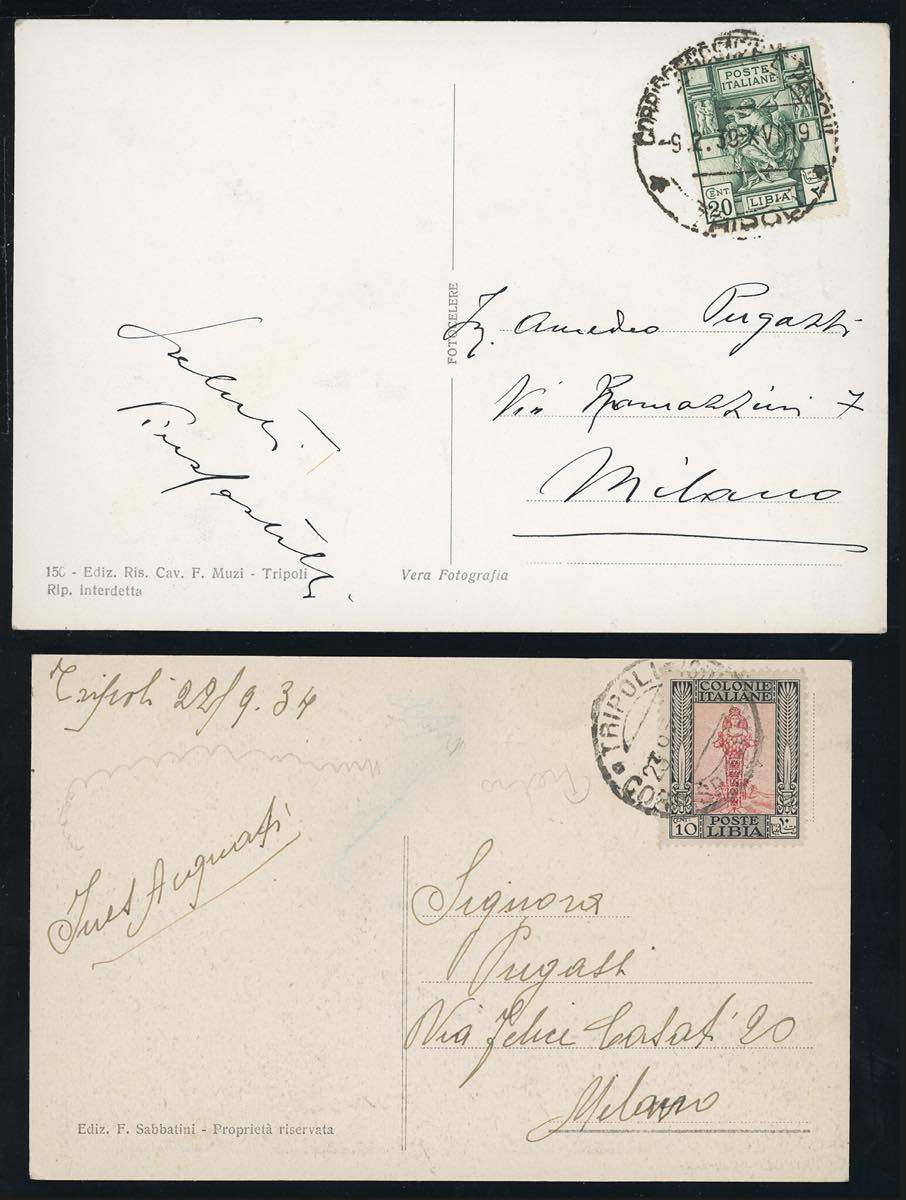 POSTE
ITALIANE
-9.2.39-XVII 19
CENT
20
LIBIA
FOTOCELERE
Amedeo Pugassi
Via Ramazzini 7
Milano
Saluti
150 - Ediz. Ris. Cav. F. Muzi - Tripoli
Rip. interdetta
Vera Fotografia
Tripoli 22/9.34
TRIPOLI
COLONIE
ITALIANE
CENT.
10
POSTE
LIBIA
١٠
Pietro
Signora
Pugassi
Via Felice Casati 20
Milano
Ediz. F. Sabbatini - Proprietà riservata